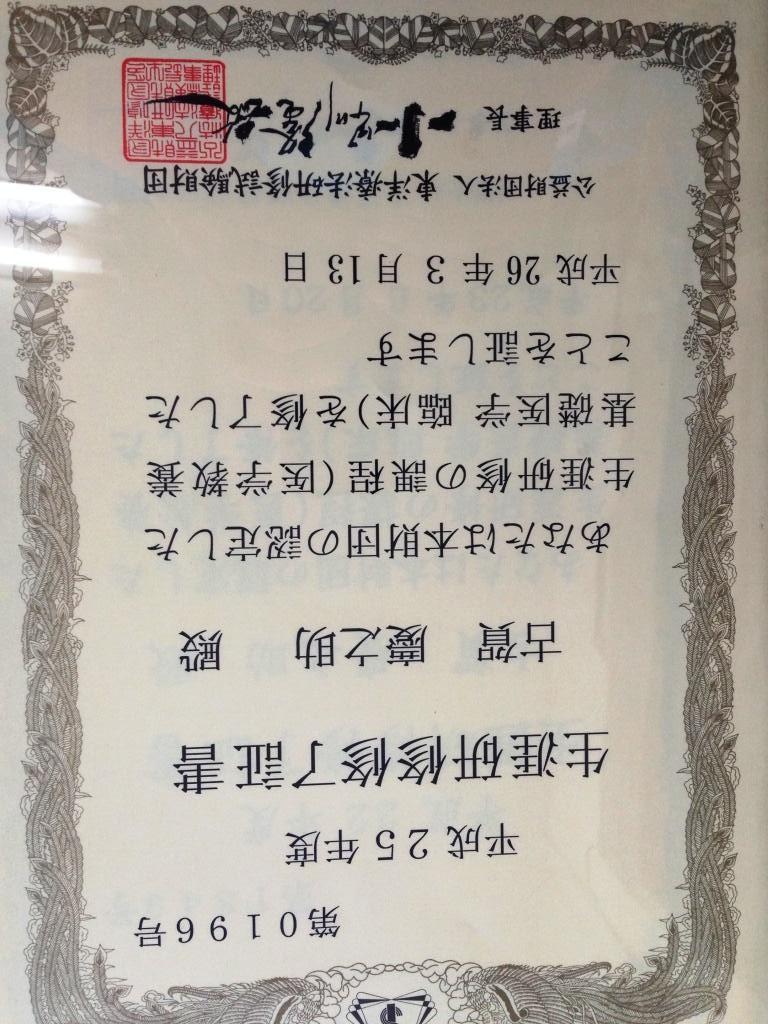 第０１９６号
平成２５年度
生涯研修修了証書
古賀　慶之助　殿
あなたは本財団の認定した
生涯研修の課程(医学教養
基礎医学 臨床)を修了した
ことを証します
平成 26 年 3 月 13 日
公益財団法人 東洋療法研修試験財団
理事長